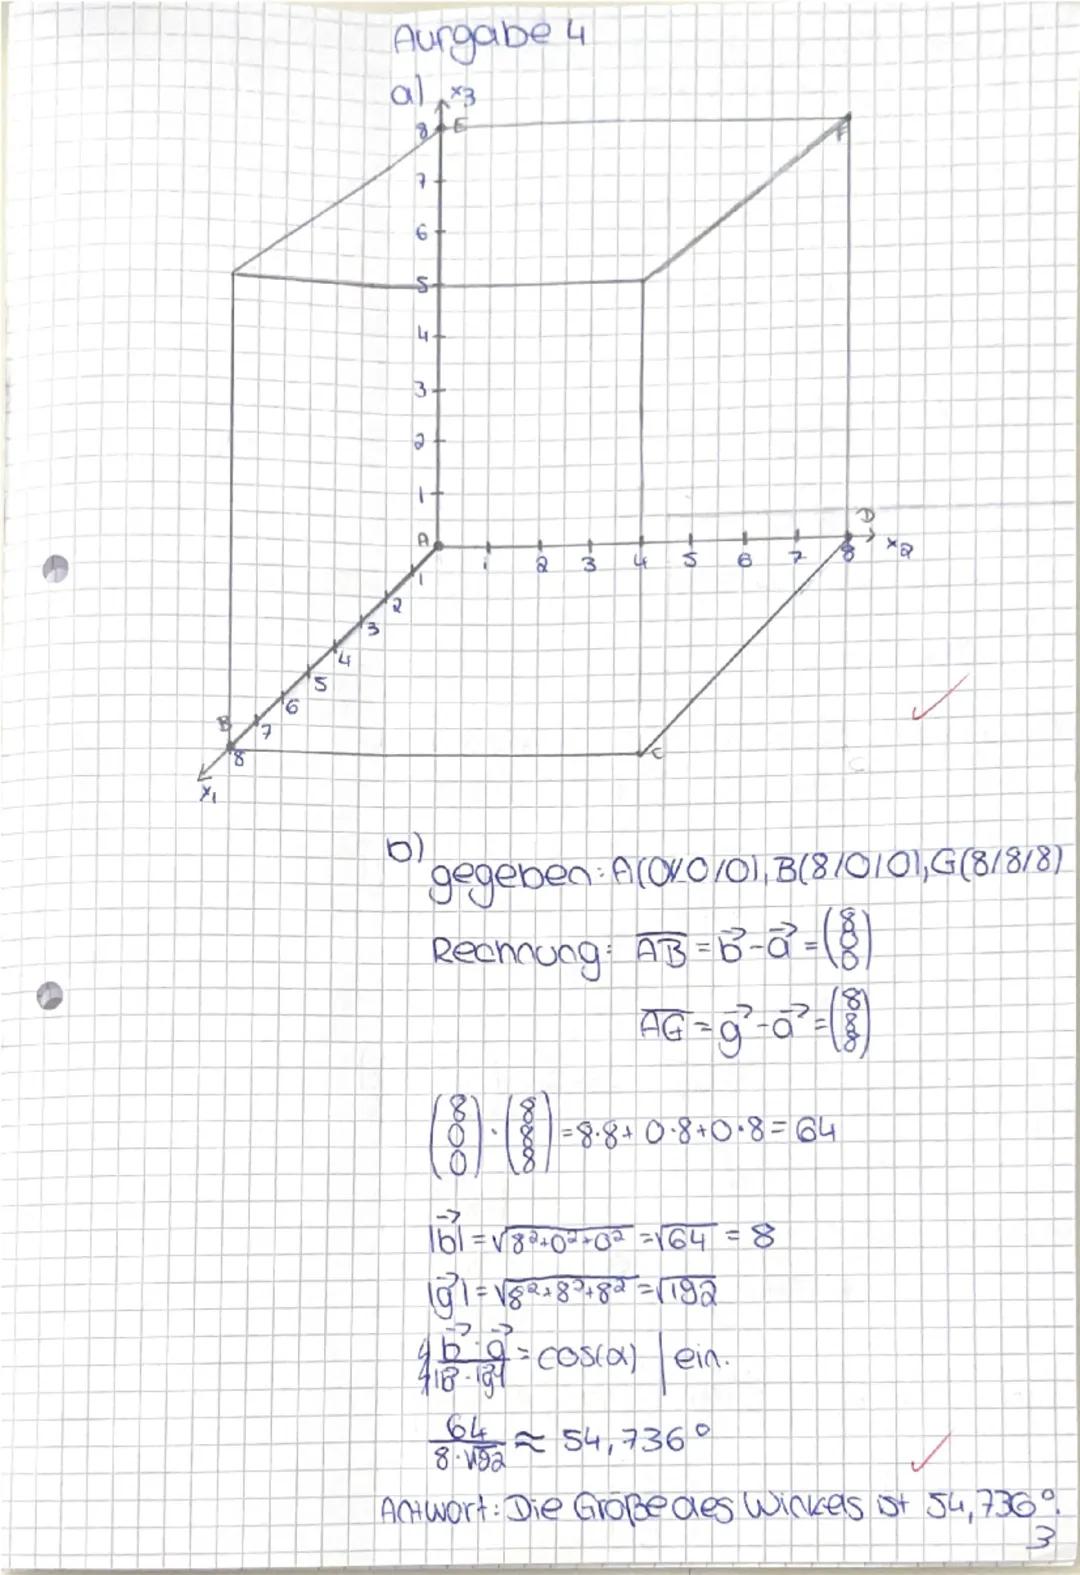 Aufgabe 4
a)
x3
8 E
F
7
6
5
4
3
2
1
A
D
1 2 3 4 5 6 7 8 x2
1
2
3
4
5
6
B 7
8
C
x1
b)
gegeben: A(0/0/0), B(8/0/0), G(8/8/8)
Rechnung: AB = b - a = (8 0 0)
AG = g - a = (8 8 8)
(8 0 0) · (8 8 8) = 8·8 + 0·8 + 0·8 = 64
|b| = √8²+0²+0² = √64 = 8
|g| = √8²+8²+8² = √192
b · g / |b| · |g| = cos(α) | ein.
64 / 8·√192 ≈ 54,736°
Antwort: Die Größe des Winkels ist 54,736°.
3